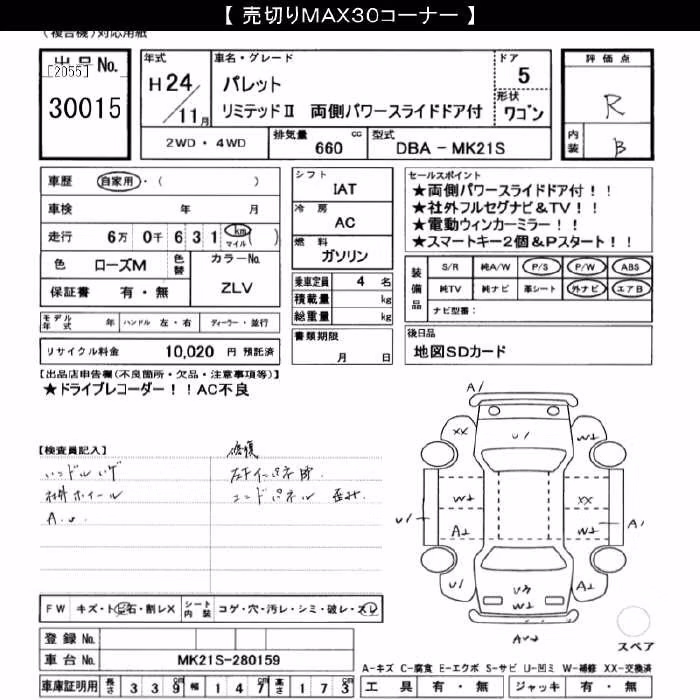 【 売切りMAX30コーナー 】
(複合機)対応用紙
出品No.
[2055]
30015
年式
H24/11月
車名・グレード
パレット
リミテッドⅡ 両側パワースライドドア付
ドア
5
形状
ワゴン
評価点
R
内装
B
2WD・4WD
排気量 660 cc
型式 DBA - MK21S
車歴 自家用・( )
車検 年 月
走行 6万0千631 km マイル ( )
色 ローズM
色替
カラーNo. ZLV
保証書 有・無
シフト IAT
冷房 AC
燃料 ガソリン
乗車定員 4 名
積載量 kg
総重量 kg
セールスポイント
★両側パワースライドドア付!!
★社外フルセグナビ&TV!!
★電動ウィンカーミラー!!
★スマートキー2個&Pスタート!!
装備品
S/R 純A/W P/S P/W ABS
純TV 純ナビ 革シート 外ナビ エアB
ナビ型番:
モデル年式 年 ハンドル 左・右 ディーラー・並行
リサイクル料金 10,020 円 預託済
書類期限
月 日
後日品
地図SDカード
【出品店申告欄(不良箇所・欠品・注意事項等)】
★ドライブレコーダー!!AC不良
【検査員記入】
修復
ハンドルハゲ
社外ホイール
コンドパネル 歪み.
A1
XX
U1
W2
W2
XX
U1
A2
W2
A1
U1
U3
W2
A2
FW キズ・ト飛石・割レX
シート内装 コゲ・穴・汚レ・シミ・破レ・スレ
登録No.
車台No. MK21S-280159
車庫証明用 長さ 339cm 幅 147cm 高さ 173cm
スペア
A-キズ C-腐食 E-エクボ S-サビ U-凹ミ W-補修 XX-交換済
工具 有・無 ジャッキ 有・無